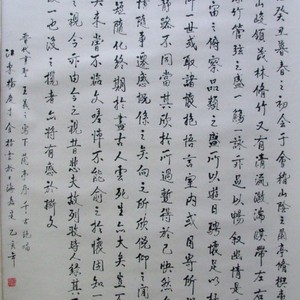 癸丑暮春之初会于會稽山陰之蘭亭
山峻領茂林修竹又有清流激湍暎帶左右
竹管弦之盛一觴一詠亦足以暢叙幽情是
宙之大俯察品類之盛所以遊目騁懷足以
一世或取諸懷抱悟言一室之内或因寄所
静躁不同當其欣於所遇暫得於己快然自
情隨事遷感慨係之矣向之所欣俛仰之
隨化終期於盡古人云死生亦大矣豈不
嘗不臨文嗟悼不能喻之於懷固知一
今之視昔悲夫故列叙時人録其
後之攬者亦將有感於斯文
晉代書聖王羲之寫下蘭亭序千古絶唱
江東楊 於上海嘉定乙亥年